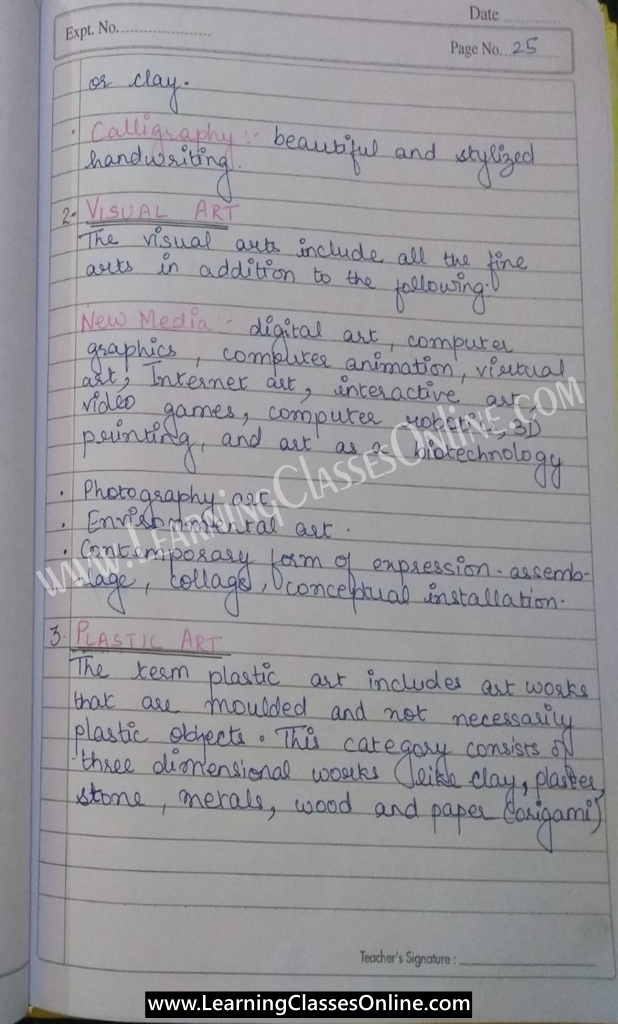 Date
Expt. No.
Page No. 25
or clay.
· Calligraphy :- beautiful and stylized
handwriting.
2. VISUAL ART
The visual arts include all the fine
arts in addition to the following.
New Media :- digital art, computer
graphics, computer animation, virtual
art, Internet art, interactive art,
video games, computer robotics, 3D
printing, and art as a biotechnology
· Photography art
· Environmental art.
· Contemporary form of expression - assemb-
lage, collage, conceptual installation.
www.LearningClassesOnline.com
3. PLASTIC ART
The term plastic art includes art works
that are moulded and not necessarily
plastic objects. This category consists of
three dimensional works like clay, plaster,
stone, metals, wood and paper (origami)
Teacher's Signature :
www.LearningClassesOnline.com